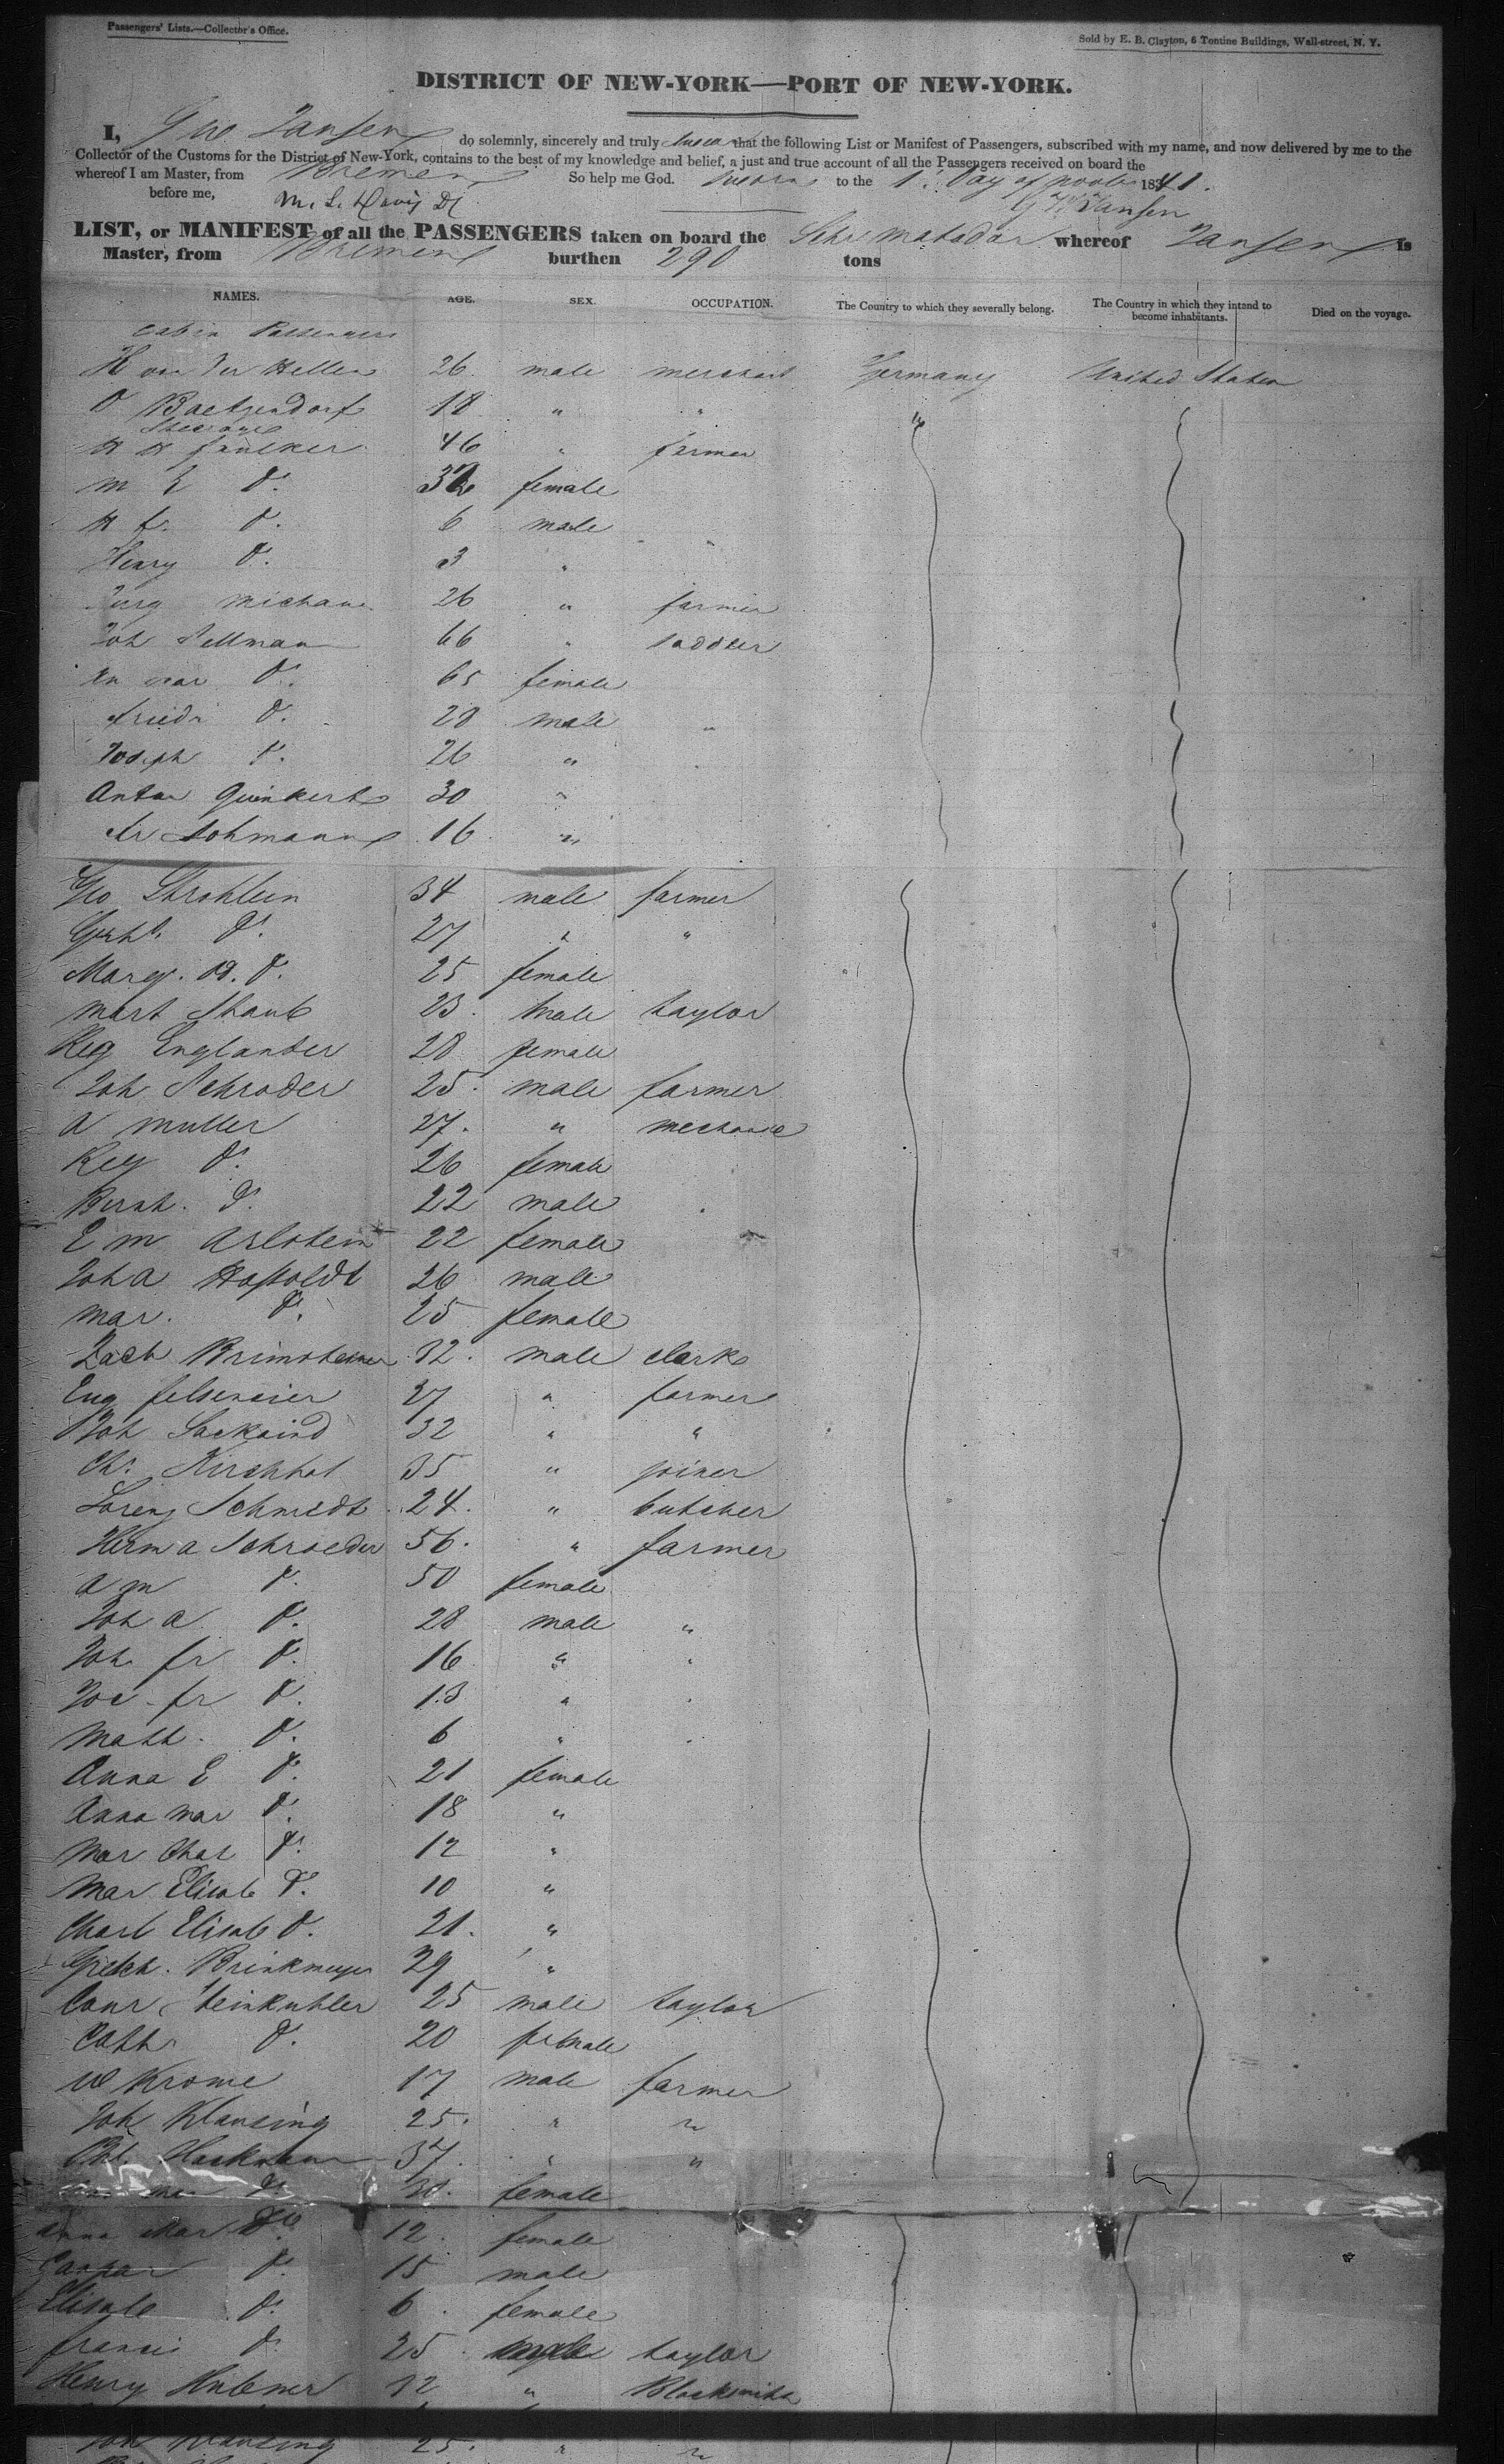 Passengers' Lists.—Collector's Office.
Sold by E. B. Clayton, 6 Tontine Buildings, Wall-street, N. Y.
DISTRICT OF NEW-YORK—PORT OF NEW-YORK.
I, Jansen do solemnly, sincerely and truly swear that the following List or Manifest of Passengers, subscribed with my name, and now delivered by me to the
Collector of the Customs for the District of New-York, contains to the best of my knowledge and belief, a just and true account of all the Passengers received on board the
whereof I am Master, from Bremen So help me God. Sworn to the 1 Day of 1841.
before me, M. L. Davis Jansen
LIST, or MANIFEST of all the PASSENGERS taken on board the Matador whereof Jansen is
Master, from Bremen burthen 290 tons
NAMES. AGE. SEX. OCCUPATION. The Country to which they severally belong. The Country in which they intend to become inhabitants. Died on the voyage.
Cabin Passengers
H von der Hellen 26 male merchant Germany United States
Baetjendorf 18 " " "
Steerage
H H Faulker 46 " farmer
M E Do. female
H f. Do. 6 male
Henry Do. 3 "
26 " farmer
Joh Sellman 66 " saddler
Do. 65 female
Friedr Do. 28 male "
Joseph Do. 26 "
Anton Quinkert 30 "
Fr Lohmann 16 "
Geo Strohlein 34 male farmer
Do. 27 " "
Marg. Do. 25 female
Mart Staub 23 male taylor
Reg Englander 28 female
Joh Schroder 25 male farmer
A Muller 27 " mechanic
Reg Do. 26 female
Bernh. Do. 22 male
E M 22 female
Joh A 26 male
Mar. Do. 25 female
Zach 32 male clark
Eug 27 " farmer
Joh 32 " "
Ch. Kirchhof 35 " joiner
Lorenz Schmidt 24 " butcher
Herm A Schroeder 56 " farmer
A M Do. 50 female
Joh A Do. 28 male "
Joh fr Do. 16 " "
Do. 13 " "
Math. Do. 6 " "
Anna E Do. 21 female
Anna Mar Do. 18 "
Mar Do. 12 "
Mar Elisab Do. 10 "
Charl Elisab Do. 21 "
Brinkmeyer 29 "
Conr Steinkuhler 25 male taylor
Cath Do. 20 female
W Krome 17 male farmer
Joh Klausing 25 " "
Hackman 37 " "
Do. female
Anna Mar Do. 12 female
Caspar Do. 15 male
Elisab Do. 6 female
Francis Do. 25 male taylor
Henry Hubener 32 " Blacksmith
Joh Klausing 25 " "